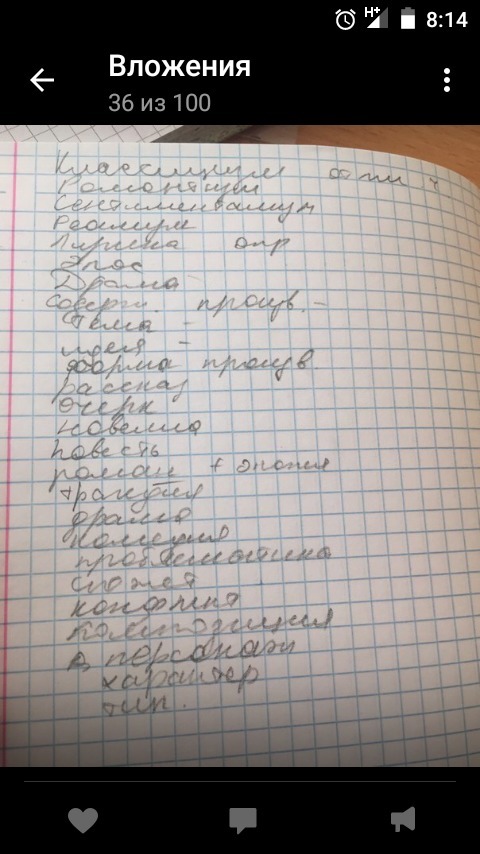 8:14
Вложения
36 из 100
Классицизм
Романтизм
Сентиментализм
Реализм
Лирика опр
Эпос
Драма -
содерж. произв. -
Тема -
идея -
форма произв.
рассказ
очерк
новелла
повесть
роман + эпопея
трагедия
драма
комедия
проблематика
сюжет
конфликт
композиция
персонаж
характер
тип.